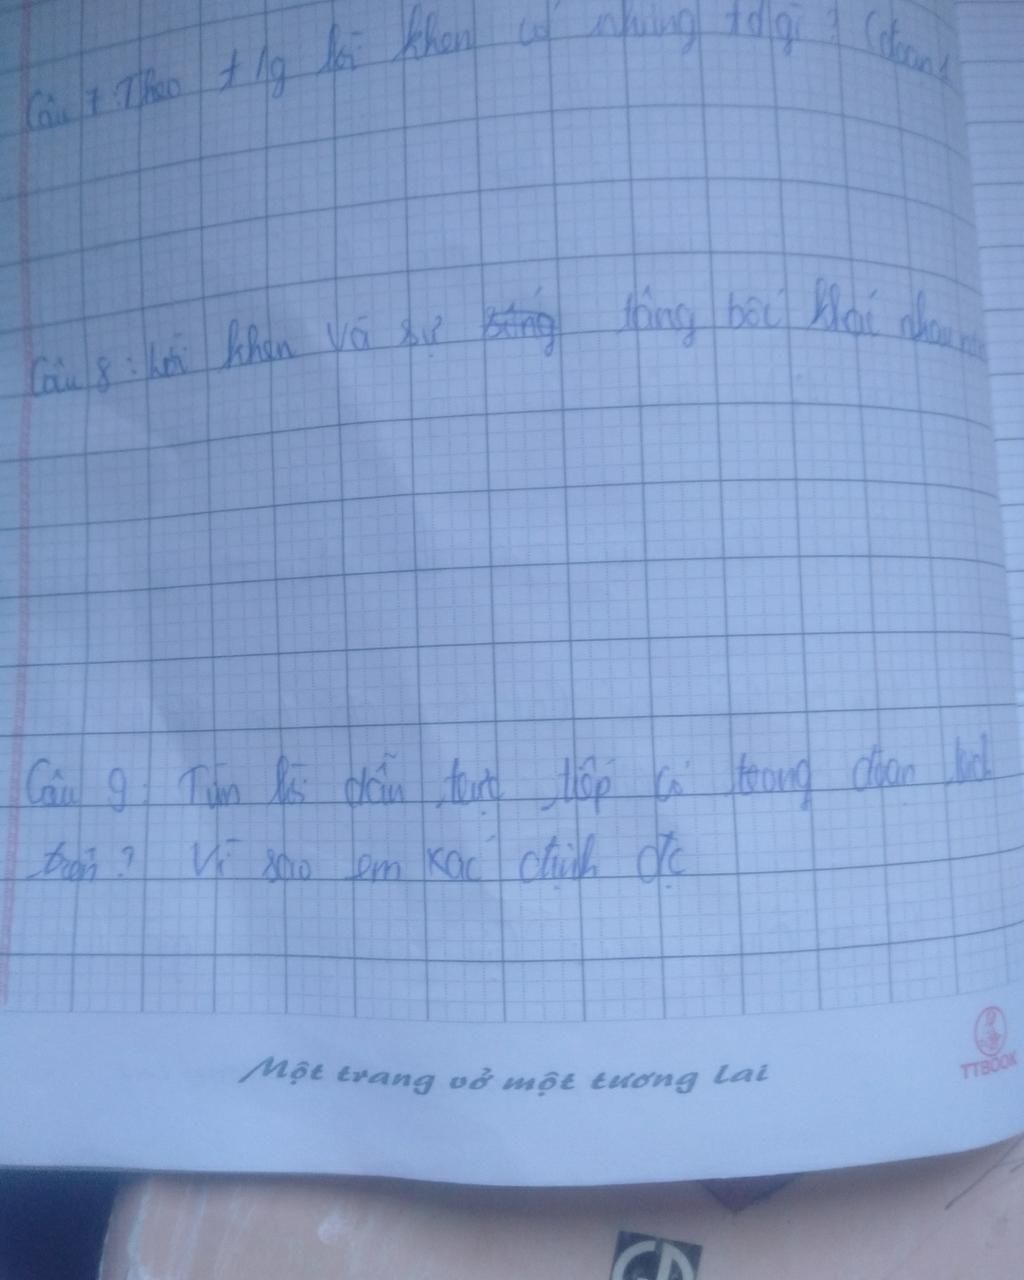 Câu 7 Theo t/g lời khen có những td gì? (đoạn 1
Câu 8: Lời khen và sự tâng bốc khác nhau
Câu 9: Tìm lời dẫn trực tiếp có trong đoạn trích
trên? Vì sao em xác định đc
Một trang vở một tương lai
TTBOOK